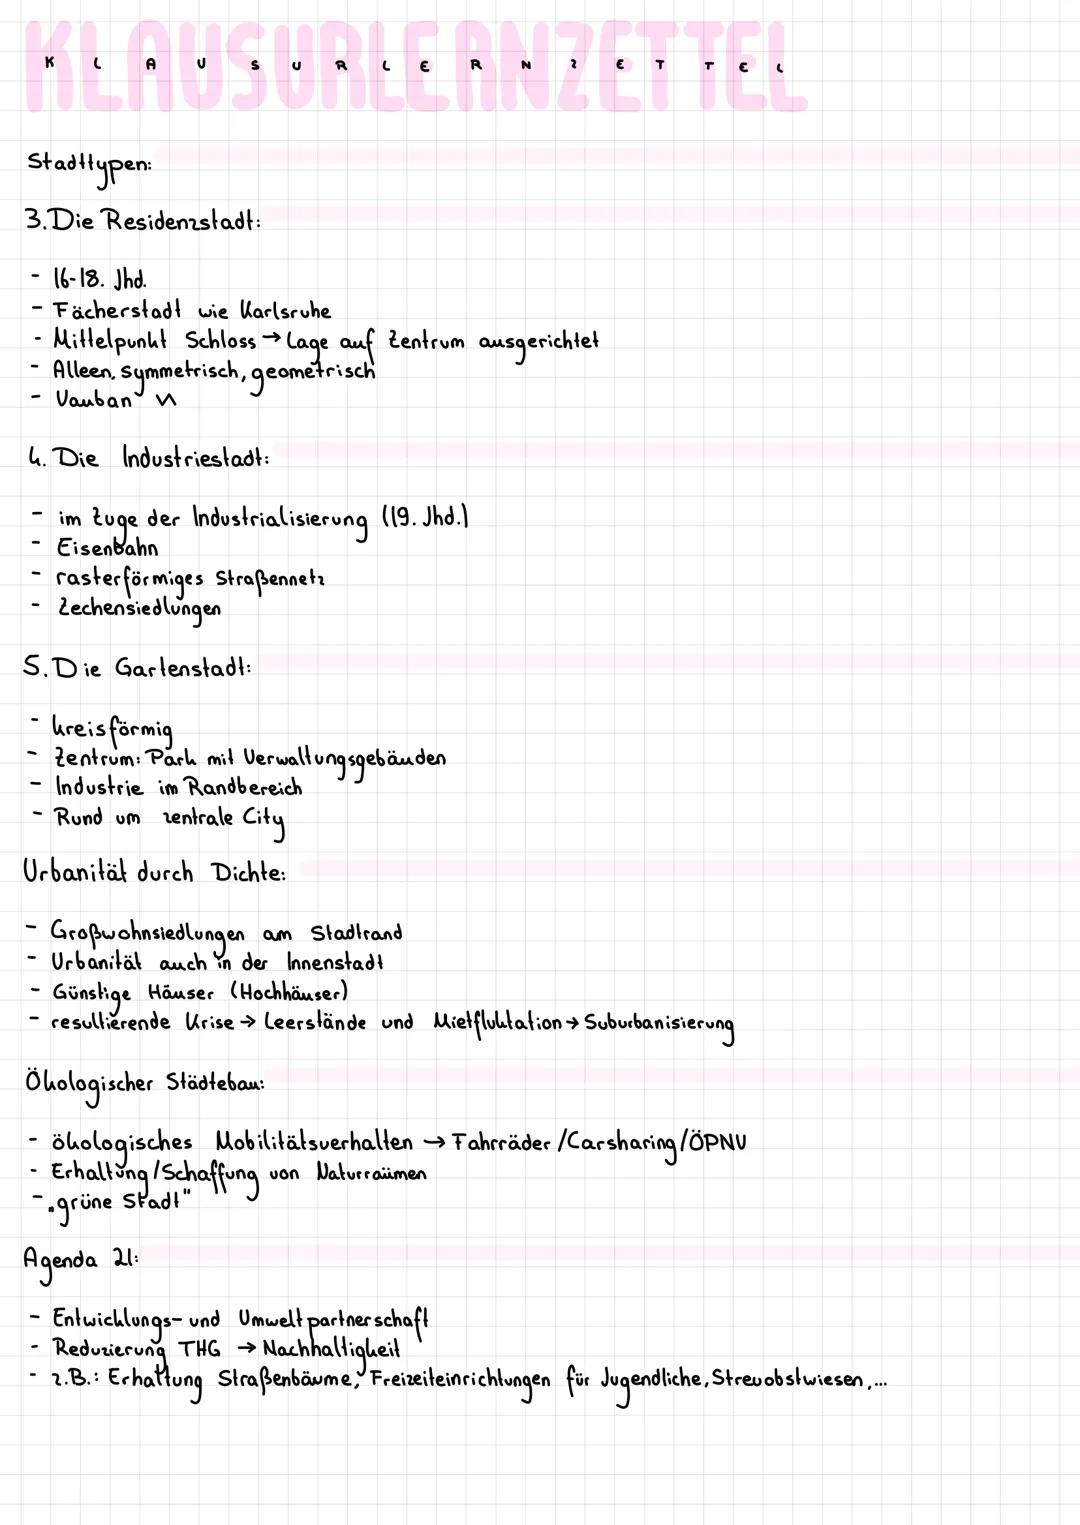 KLAUSURLERNZETTEL
K L A U S U R L E R N Z E T T E L
Stadttypen:
3. Die Residenzstadt:
- 16-18. Jhd.
- Fächerstadt wie Karlsruhe
- Mittelpunkt Schloss → Lage auf Zentrum ausgerichtet
- Alleen, symmetrisch, geometrisch
- Vauban
4. Die Industriestadt:
- im Zuge der Industrialisierung (19. Jhd.)
- Eisenbahn
- rasterförmiges Straßennetz
- Zechensiedlungen
5. Die Gartenstadt:
- kreisförmig
- Zentrum: Park mit Verwaltungsgebäuden
- Industrie im Randbereich
- Rund um zentrale City
Urbanität durch Dichte:
- Großwohnsiedlungen am Stadtrand
- Urbanität auch in der Innenstadt
- Günstige Häuser (Hochhäuser)
- resultierende Krise → Leerstände und Mietfluktation → Suburbanisierung
Ökologischer Städtebau:
- ökologisches Mobilitätsverhalten → Fahrräder/Carsharing/ÖPNV
- Erhaltung/Schaffung von Naturraümen
- „grüne Stadt"
Agenda 21:
- Entwicklungs- und Umweltpartnerschaft
- Reduzierung THG → Nachhaltigkeit
- z.B.: Erhaltung Straßenbäume, Freizeiteinrichtungen für Jugendliche, Streuobstwiesen,...